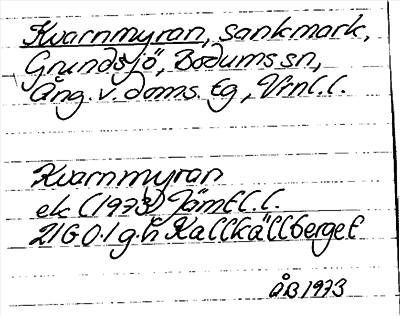 Kvarnmyran, sankmark,
Grundsjö, Bodums sn,
Ång. v. doms. tg, Vrnl. l.
Kvarnmyran
ek (1973) Jämtl. l.
21G 0.1 g.h Kallkällberget
ÅB 1973